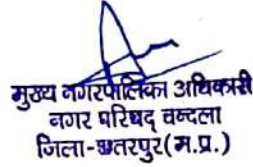 मुख्य नगरपालिका अधिकारी
नगर परिषद् चन्दला
जिला-छतरपुर(म.प्र.)